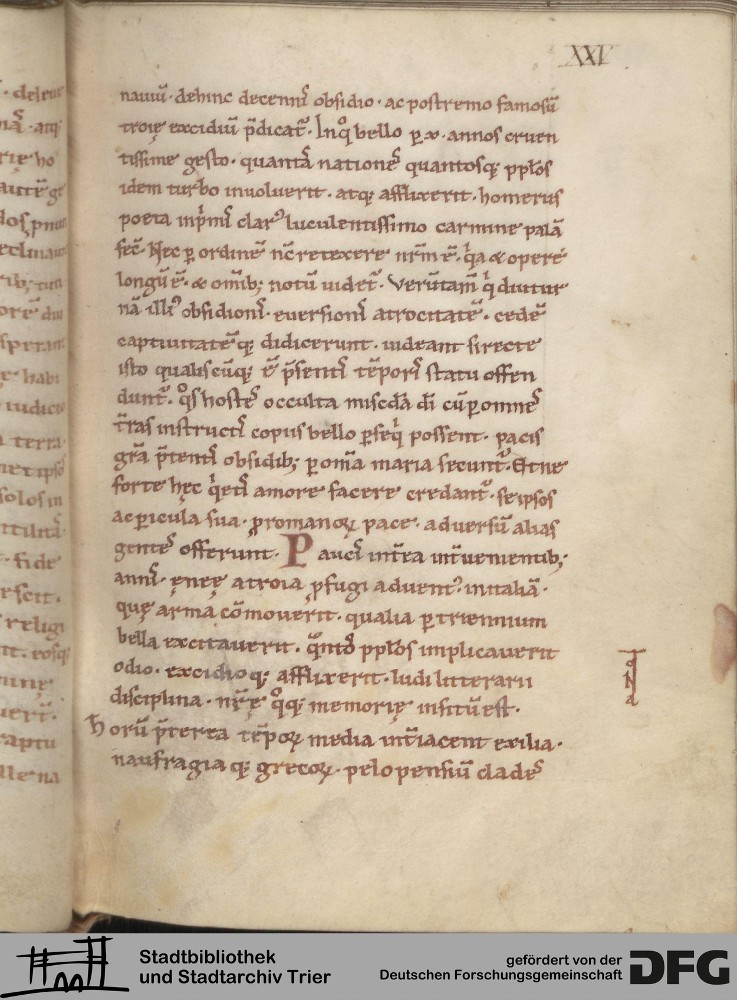 XXV
nauiū· dehinc decennis̄ obsidio· ac postremo famosū
troię excidiū p̄dicat᷑. In qͦ bello ꝑ x· annos cruen
tissime gesto· quantas̄ nationes̄ quantosq; ppłos
idem turbo inuoluerit· atq; afflixerit· homerus
poeta inp̄mis̄ clarꝰ luculentissimo carmine palā
fec̄· Nec ꝑ ordinē nc̄ retexere nr̄m ē· q̇a & operę
longū ē· & om̄ib; notū uidet᷑. Verūtam̄ q̇ diutur
nā illiꝰ obsidionis̄· euersionis̄ atrocitatē· cedē
captiuitatēq; didicerunt· uideant si recte
isto qualiscūq; ē p̄sentis̄ tēporis̄ statu offen
dunt᷑· qͦs hostes̄ occulta misc̄dā dī cū ꝑ omnes̄
t̄ras instructis̄ copiis bello ꝑseq̇ possent· pacis
grā p̄tentis̄ obsidib; ꝑ om̄ia maria secunt᷑. Et ne
forte hęc q̇etis̄ amore facere credant᷑· se ipsos
ac ꝑicula sua· ꝓ romanoꝝ pace· aduersū alias
gentes̄ offerunt· Paucis̄ int̄ea int̄uenientib;·
annis̄· ęnęę a troia ꝓfugi aduentꝰ in italiā·
quę arma cōmouerit· qualia ꝑ triennium
bella excitauerit· qͣntos̄ ppłos implicauerit
odio· excidioq; afflixerit· ludi litterarii
disciplina· nr̄ę qͦq; memorię insitū est·
Horū p̄terea tēpoꝝ media int̄iacent exilia·
naufragiaq; grecoꝝ· peloponsiū clades̄
Stadtbibliothek
und Stadtarchiv Trier
gefördert von der
Deutschen Forschungsgemeinschaft
DFG